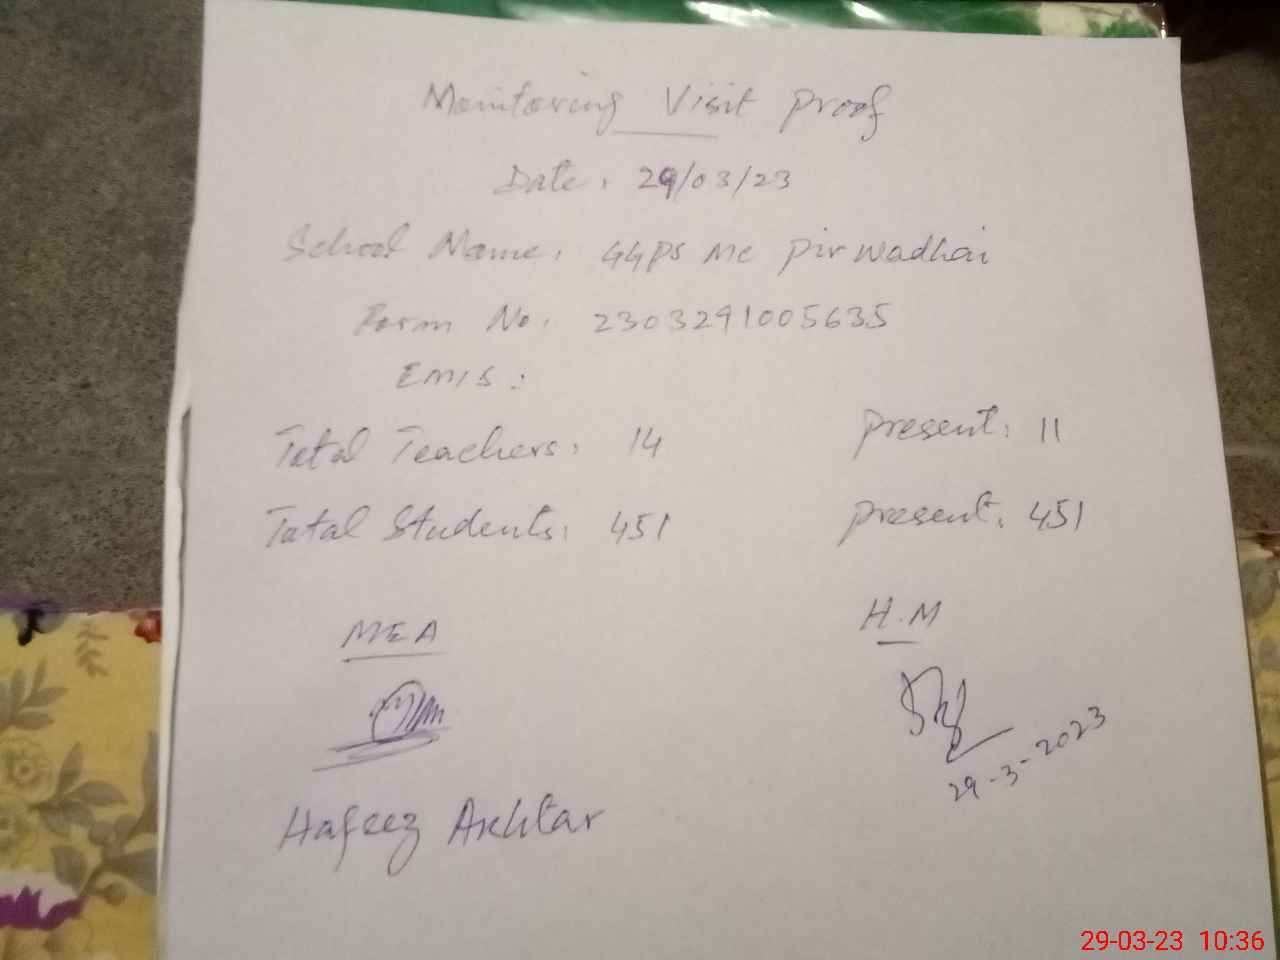 Monitoring Visit Proof
Date: 29/03/23
School Name: GGPS MC Pirwadhai
Form No: 2303291005635
EMIS:
Total Teachers: 14 Present: 11
Total Students: 451 Present: 451
MEA H.M
29-3-2023
Hafeez Akhtar
29-03-23 10:36